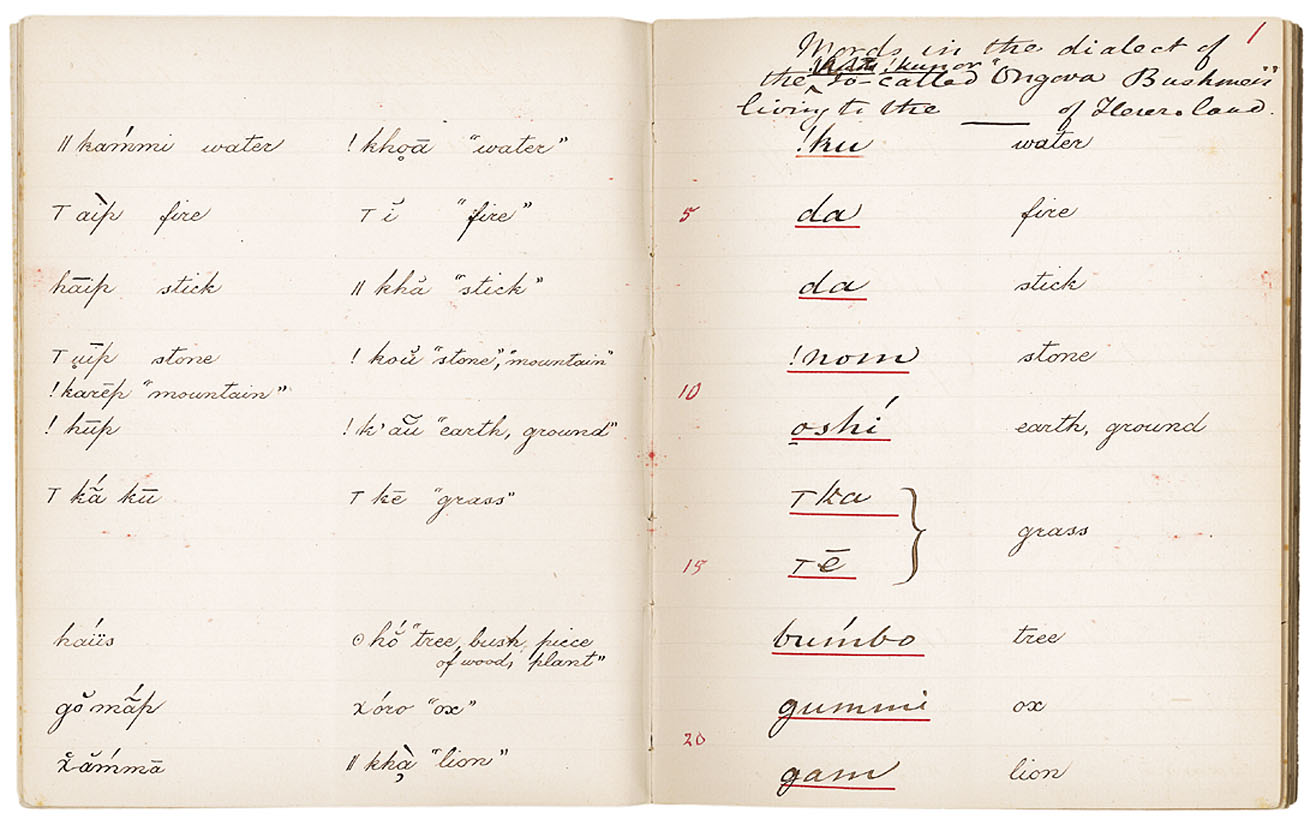 ǁ kam̋mi water ! kho̤ā "water"
T aìp fire T ĭ "fire"
hāip stick ǁ khă "stick"
T ṳīp stone ! koŭ "stone", "mountain"
! karēp "mountain"
! hūp ! k'aŭ "earth, ground"
T kắ kū T kē "grass"
haúïs ʘ hŏ́ "tree, bush, piece
of wood, plant"
gŏ mắp xóro "ox"
xắmmā ǁ khà̦ "lion"
1
Words in the dialect of
!kunor"
the so-called "Ongova Bushmen"
living to the ____ of Hereroland.
!ku water
5 da fire
da stick
!nom stone
10
o̱shí earth, ground
T ka
grass
15 T ē
buḿbo tree
gummi ox
20
gam lion